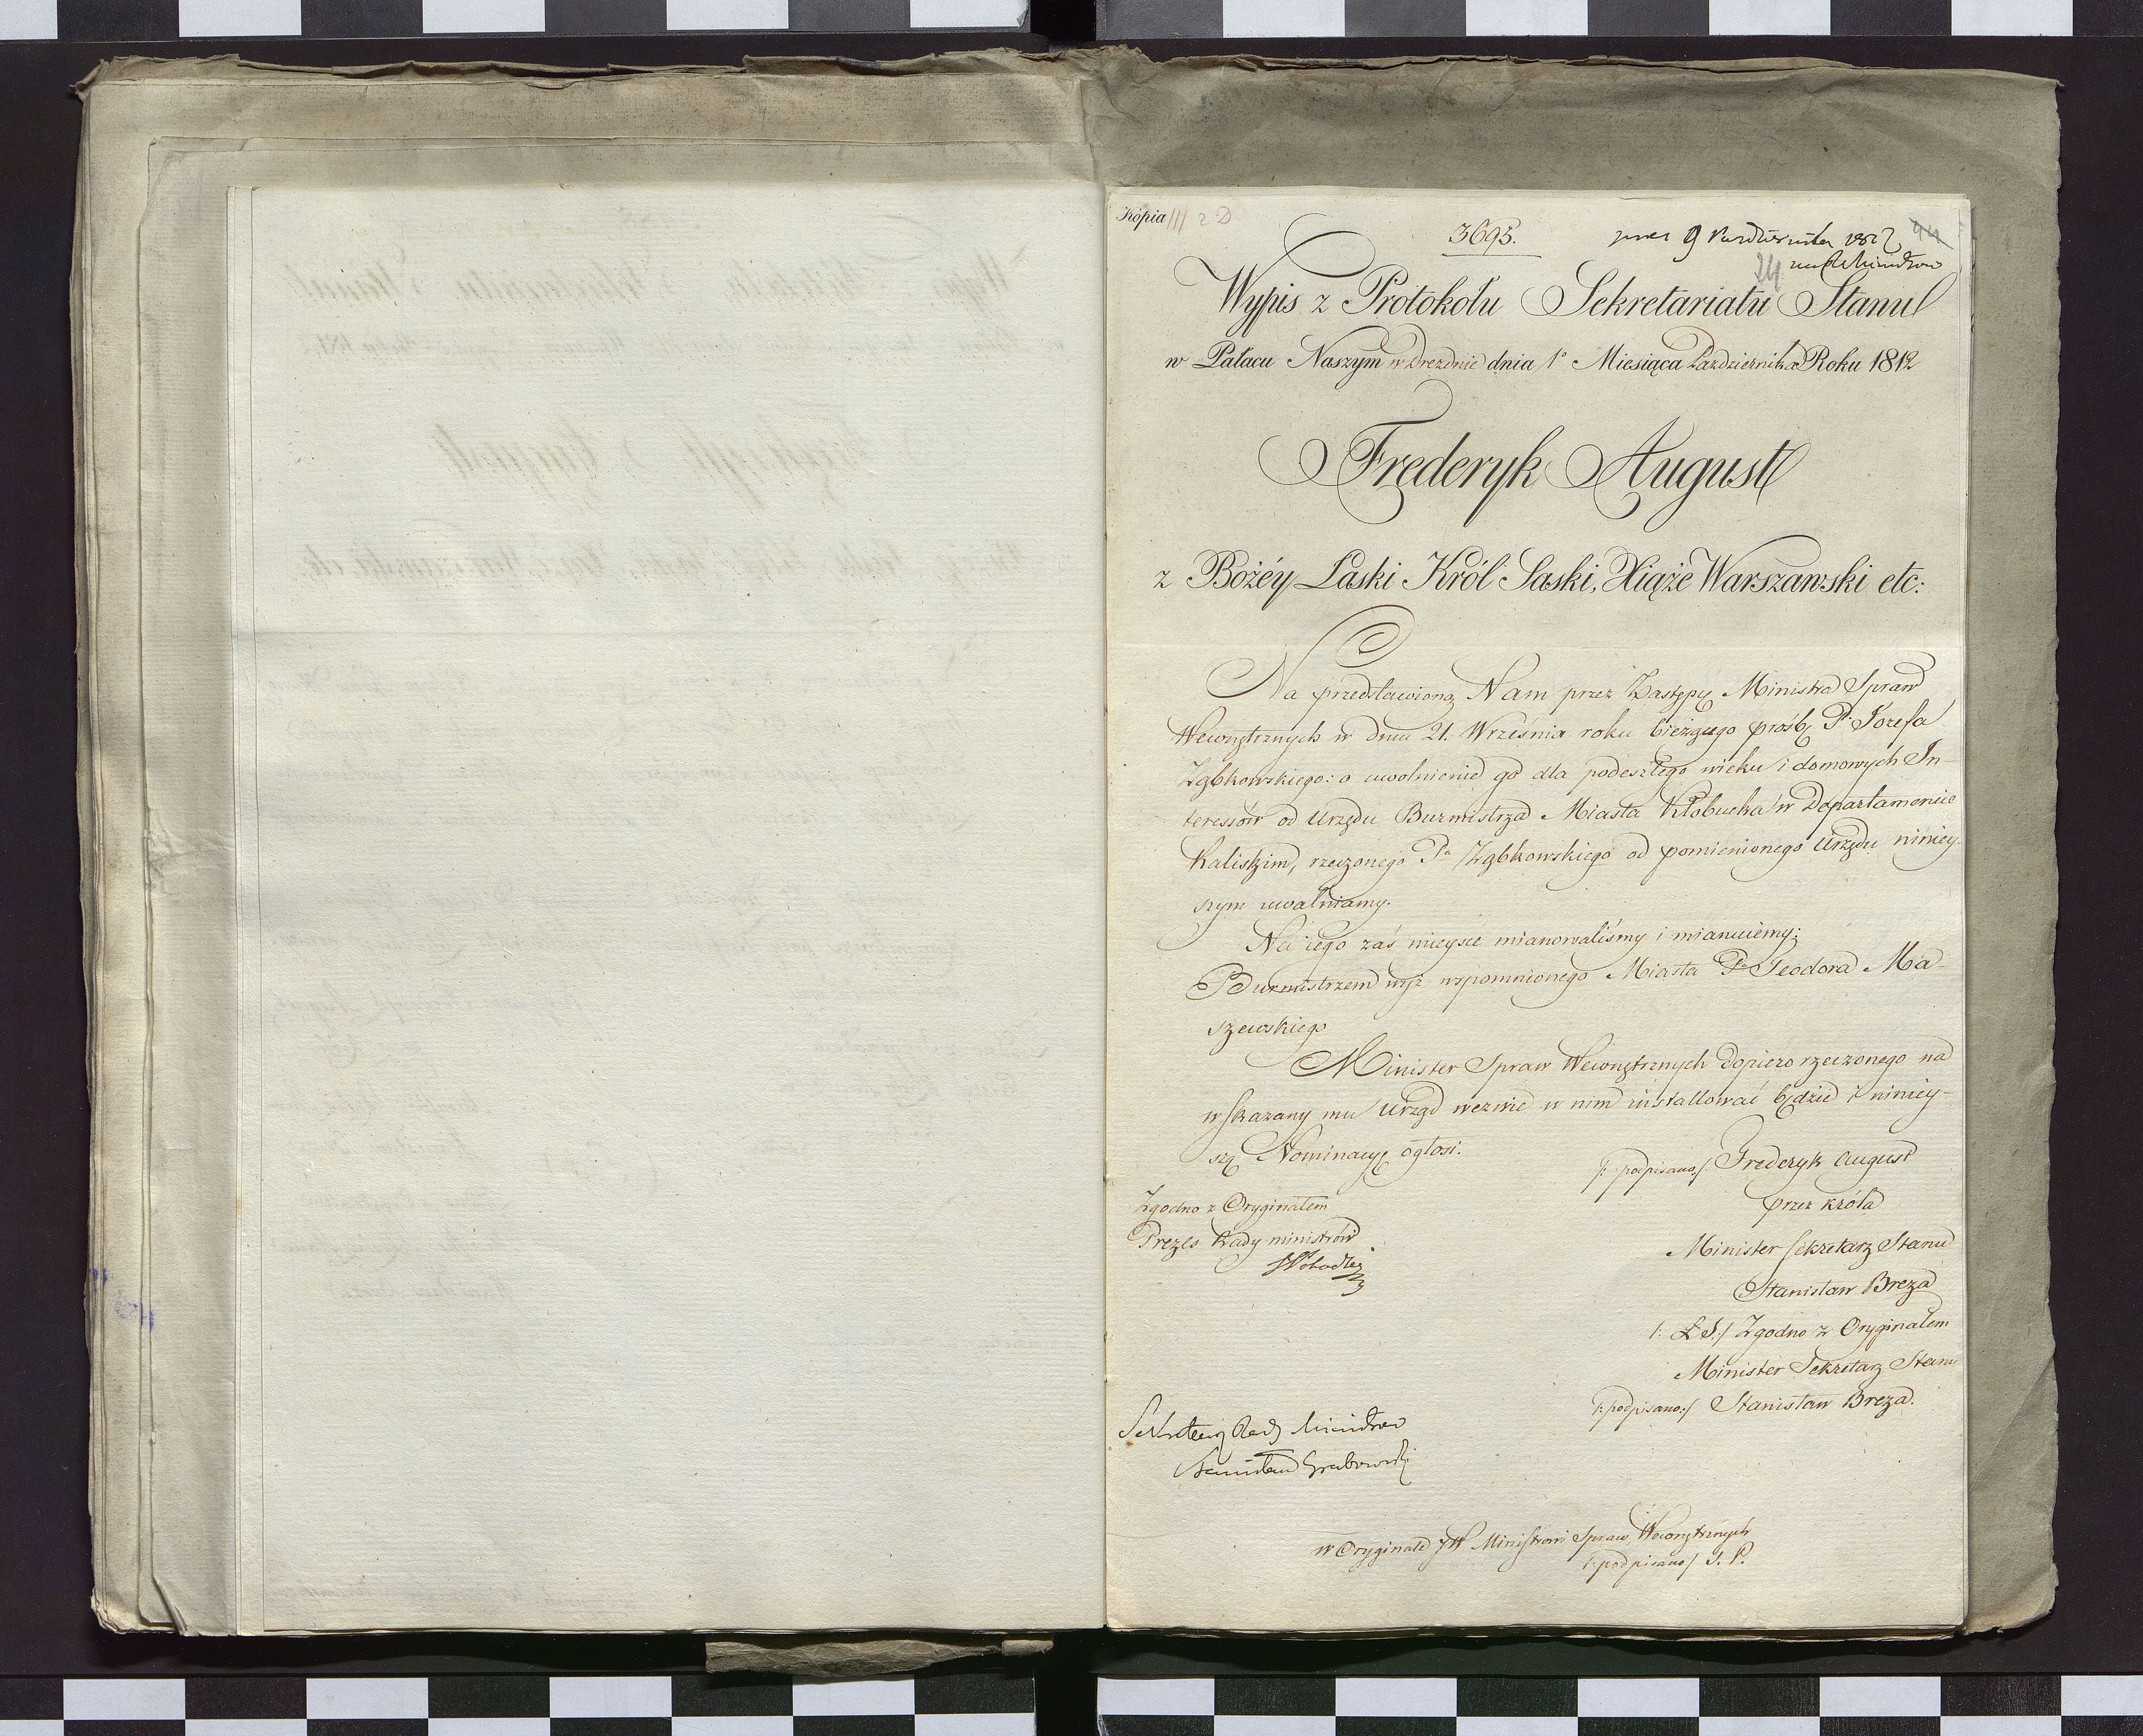 Kópia III 2 D
3695.
9 Października 1812 94
24
Wypis z Protokołu Sekretariatu Stanu
w Pałacu Naszym w Dreznie dnia 1° Miesiąca Października Roku 1812
Frederyk August
z Bożéy Łaski Król Saski, Xiąże Warszawski etc:
Na przedstawioną Nam przez Zastępcę Ministra Spraw
Wewnętrznych w dniu 21. Września roku bieżącego prośbę Pa Jozefa
Ząbkowskiego: o uwolnienie go dla podeszłego wieku i domowych In-
teressów od Urzędu Burmistrza Miasta Kłobucka w Departamencie
Kaliskim, rzeczonego Pa Ząbkowskiego od pomienionego Urzędu niniey-
szym uwalniamy.
Na iego zaś mieysce mianowaliśmy i mianuiemy:
Burmistrzem wyż wspomnionego Miasta Pa Teodora Ma-
szewskiego
Minister Spraw Wewnętrznych dopiero rzeczonego na
wskazany mu Urząd wezwie w nim installować będzie i niniey-
szą Nominacyę ogłosi.
/: podpisano:/ Frederyk August
przez króla
Minister Sekretarz Stanu
Stanisław Breza
/: L.S:/ Zgodno z Oryginałem
Minister Sekretarz Stanu
/:podpisano:/ Stanisław Breza.
Zgodno z Oryginałem
Prezes Rady ministrów
Sekretarz Rady Ministrow
Stanisław Grabowski
w Oryginale JW Ministrowi Spraw Wewnętrznych
/:podpisano/ S. P.